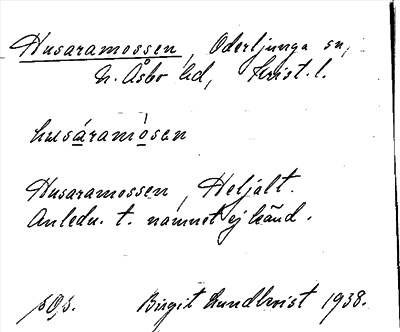 Husaramossen, Oderljunga sn,
N. Åsbo hd, Krist. l.
husáramòsen
Husaramossen, Heljalt.
Anledn. t. namnet ej känd.
Birgit Lundkvist 1938.